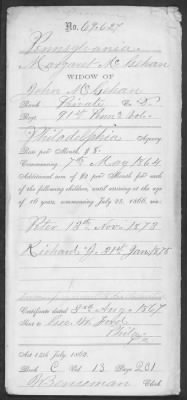 No. 69.627
Pennsylvania
Margaret McGehan
WIDOW OF
John McGehan
Rank Private Co. D.
Regt. 91st Penn'a Vol.
Philadelphia Agency
Rate per Month, $8
Commencing 7th May 1864
Additional sum of $2 per Month for each
of the following children, until arriving at the age
of 16 years, commencing July 25, 1866, viz:
Peter 13th Nov. 1873
Richard J. 21st Jan 1875
Certificate dated 3rd Aug. 1867
Sent to Geo. W. Ford
Phila
Pa
Act 14th July, 1862.
Book C Vol. 13 Page 201
Clerk